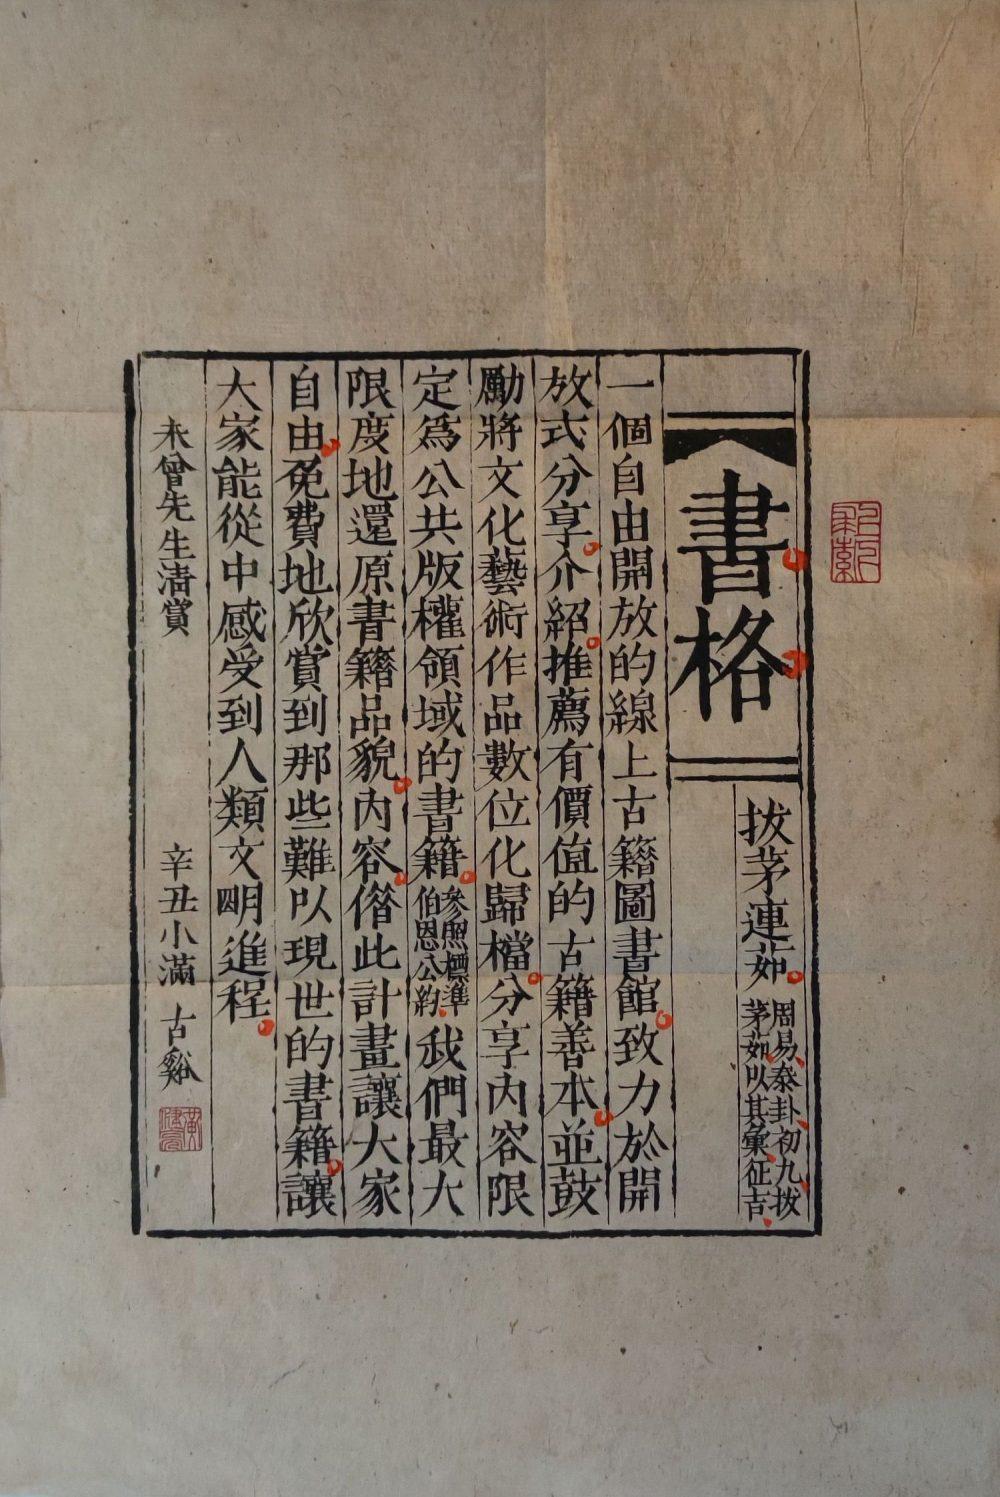 書格
拔茅連茹
周易泰卦初九拔
茅茹以其彙征吉
一個自由開放的線上古籍圖書館致力於開
放式分享介紹推薦有價值的古籍善本並鼓
勵將文化藝術作品數位化歸檔分享內容限
定爲公共版權領域的書籍參照標準伯恩公約我們最大
限度地還原書籍品貌內容偺此計畫讓大家
自由免費地欣賞到那些難以現世的書籍讓
大家能從中感受到人類文明進程
未曾先生清賞 辛丑小滿 古谿